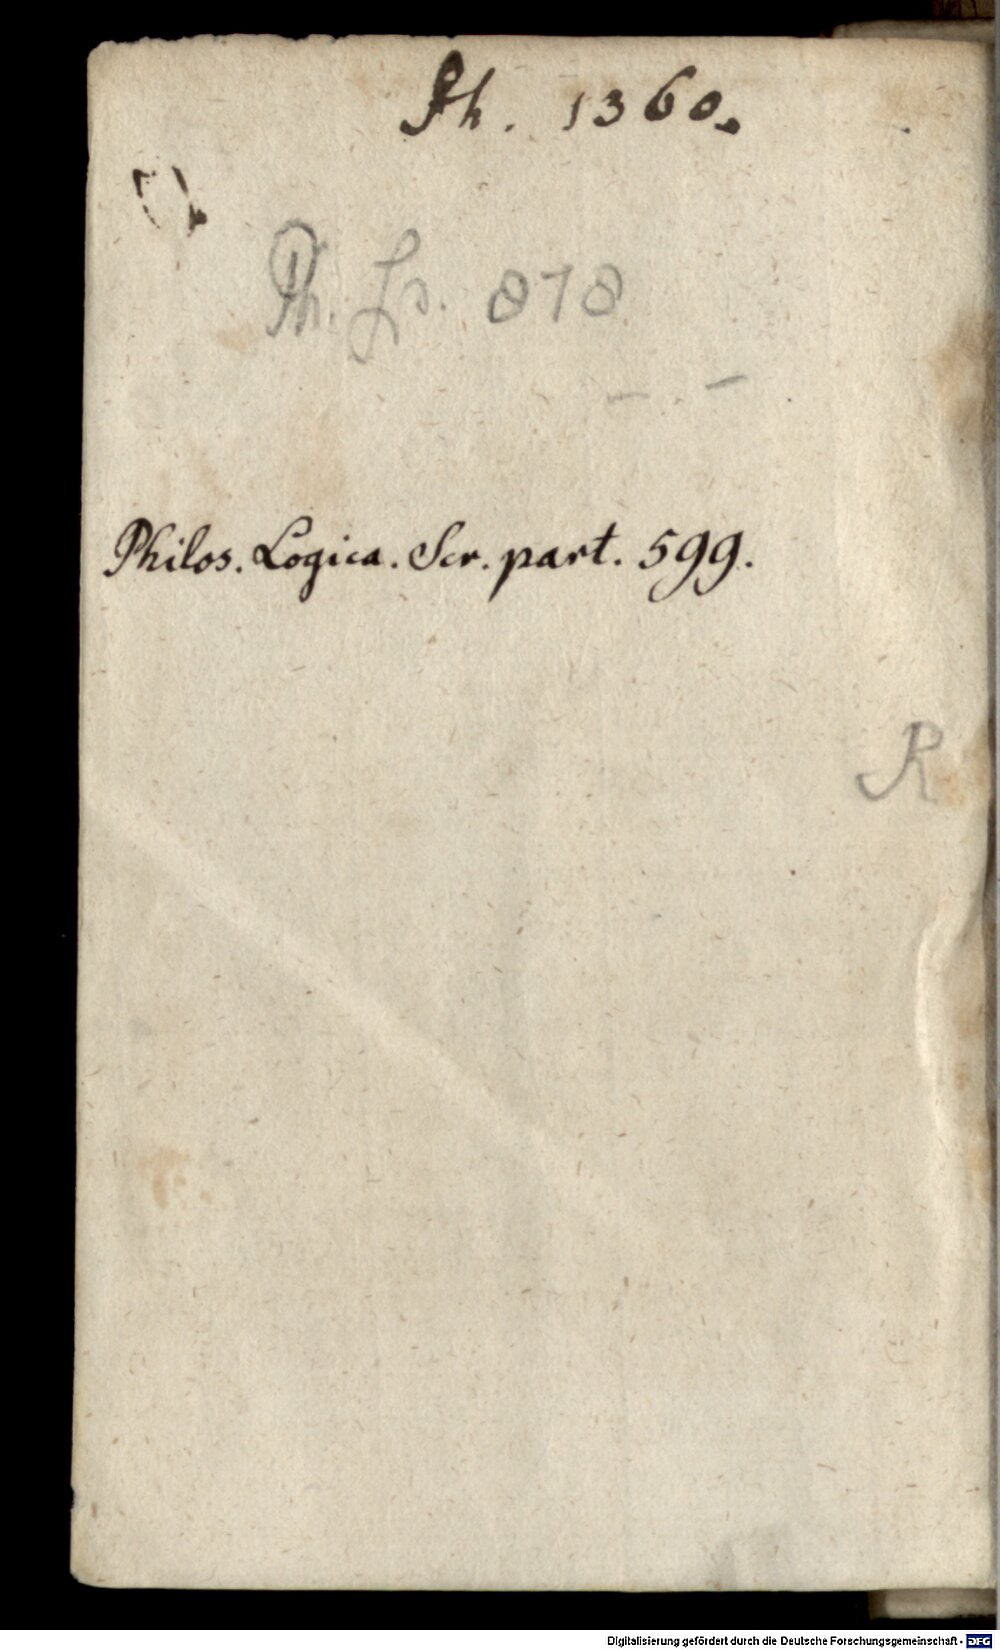 Ph. 1360.
Ph. Lo. 878
Philos. Logica. Scr. part. 599.
R
Digitalisierung gefördert durch die Deutsche Forschungsgemeinschaft - DFG